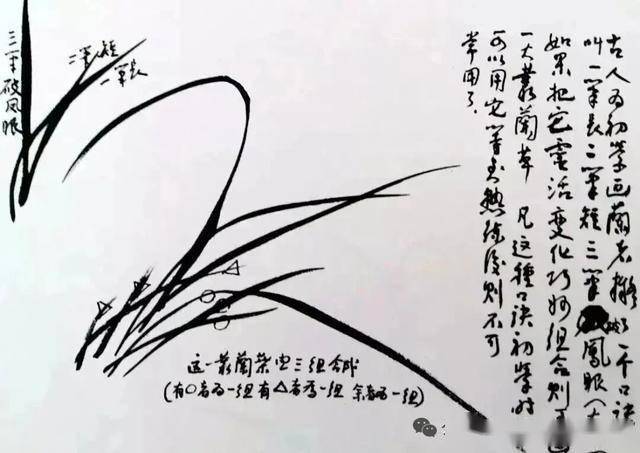 古人为初学画蘭者擬一个口诀
叫一笔长二笔短三笔鳳眼(大
如果把它霊活变化巧妙组合则
一大叢蘭草 凡这種口诀初学时
可以用它等到熟练後则不可
常用了.
三笔破凤眼
二笔短
一笔长
这一叢蘭葉由三组合成
(有○者为一组有△者为一组 余者为一组)